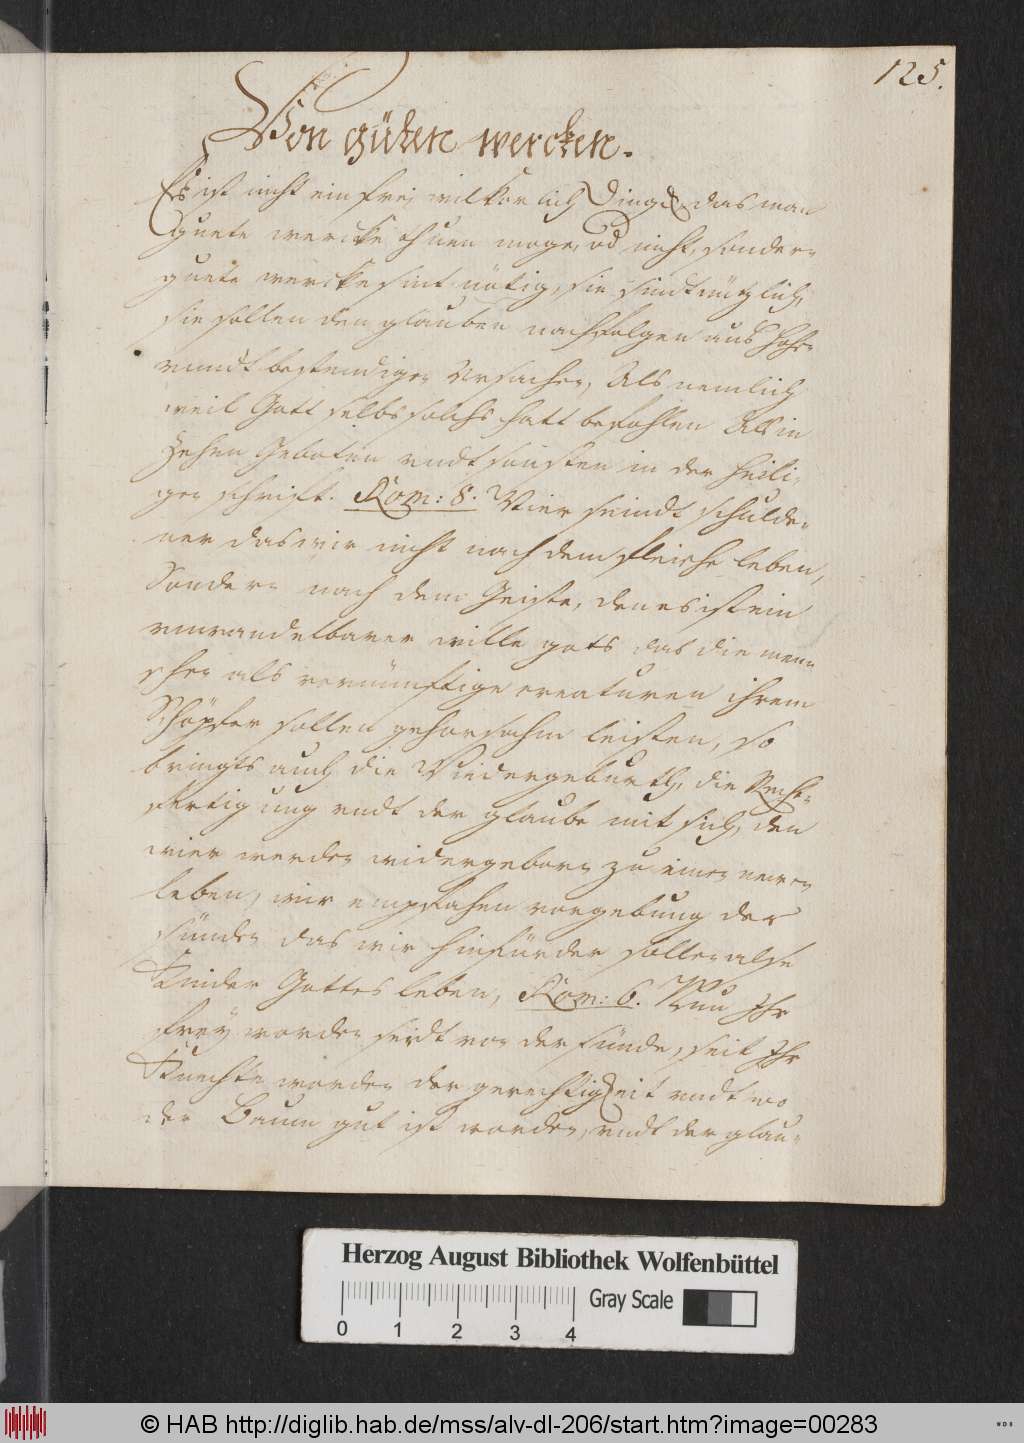 125.
Von güten wercken.
Es ist nicht ein frej wilkorlich Dingk das man
guete wercke thuen moge, od nicht, sondern
guete wercke sint nötig, sie sindt nützlich
sie sollen den glauben nachfolgen aus hohen
vundt bestendigen Ursachen, Als nemlich
weil Gott selbs solchs hatt befohlen Als in
Zehen Geboten vndt sonsten in der heili-
gen schrift. Rom: 8. Wier seindt schulde-
ner das wir nicht nach dem fleische leben,
Sondern nach dem Geiste, den es ist ein
vnwandelbarer wille gots das die men-
schen als vernünftige creaturen ihrem
Schöpfer sollen gehorsahm leisten, so
bringts auch die Wiedergeburth, die Recht-
fertigung vndt der glaube mit sich, den
wier werden widergeborn zu einen neuen
leben, wir empfahen vorgebung der
sünden das wir hinfürder sollen alse
Kinder Gottes leben, Rom: 6. Nun Ihr
frey worden seidt von der sünde, seit Ihr
Knechte worden der gerechtigkeit vndt wo
der Baum gut ist worden, vndt der glau-
Herzog August Bibliothek Wolfenbüttel
Gray Scale
0 1 2 3 4
© HAB http://diglib.hab.de/mss/alv-dl-206/start.htm?image=00283